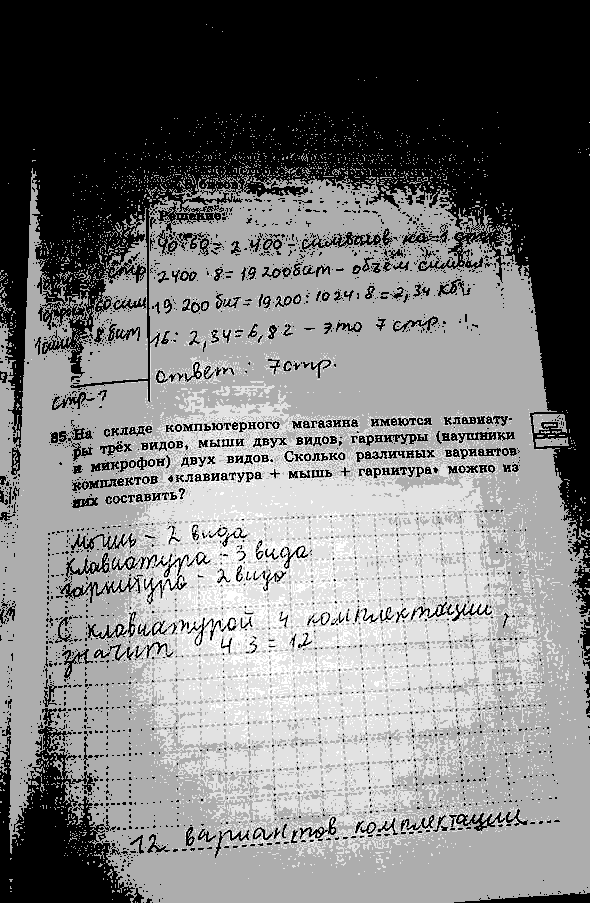 Решение:
40·60=2400 - символов на 1 стр
стр 2400·8=19200бит - объём символ.
19200бит=19200:1024:8=2,34 Кб
8 бит 16:2,34=6,82 - это 7 стр.
ответ: 7стр.
стр-?
85. На складе компьютерного магазина имеются клавиату-
ры трёх видов, мыши двух видов, гарнитуры (наушники
и микрофон) двух видов. Сколько различных вариантов
комплектов «клавиатура + мышь + гарнитура» можно из
них составить?
мышь - 2 вида
клавиатура - 3 вида
гарнитура - 2 вида
С клавиатурой 4 комплектации,
значит 4·3=12
12 вариантов комплектации